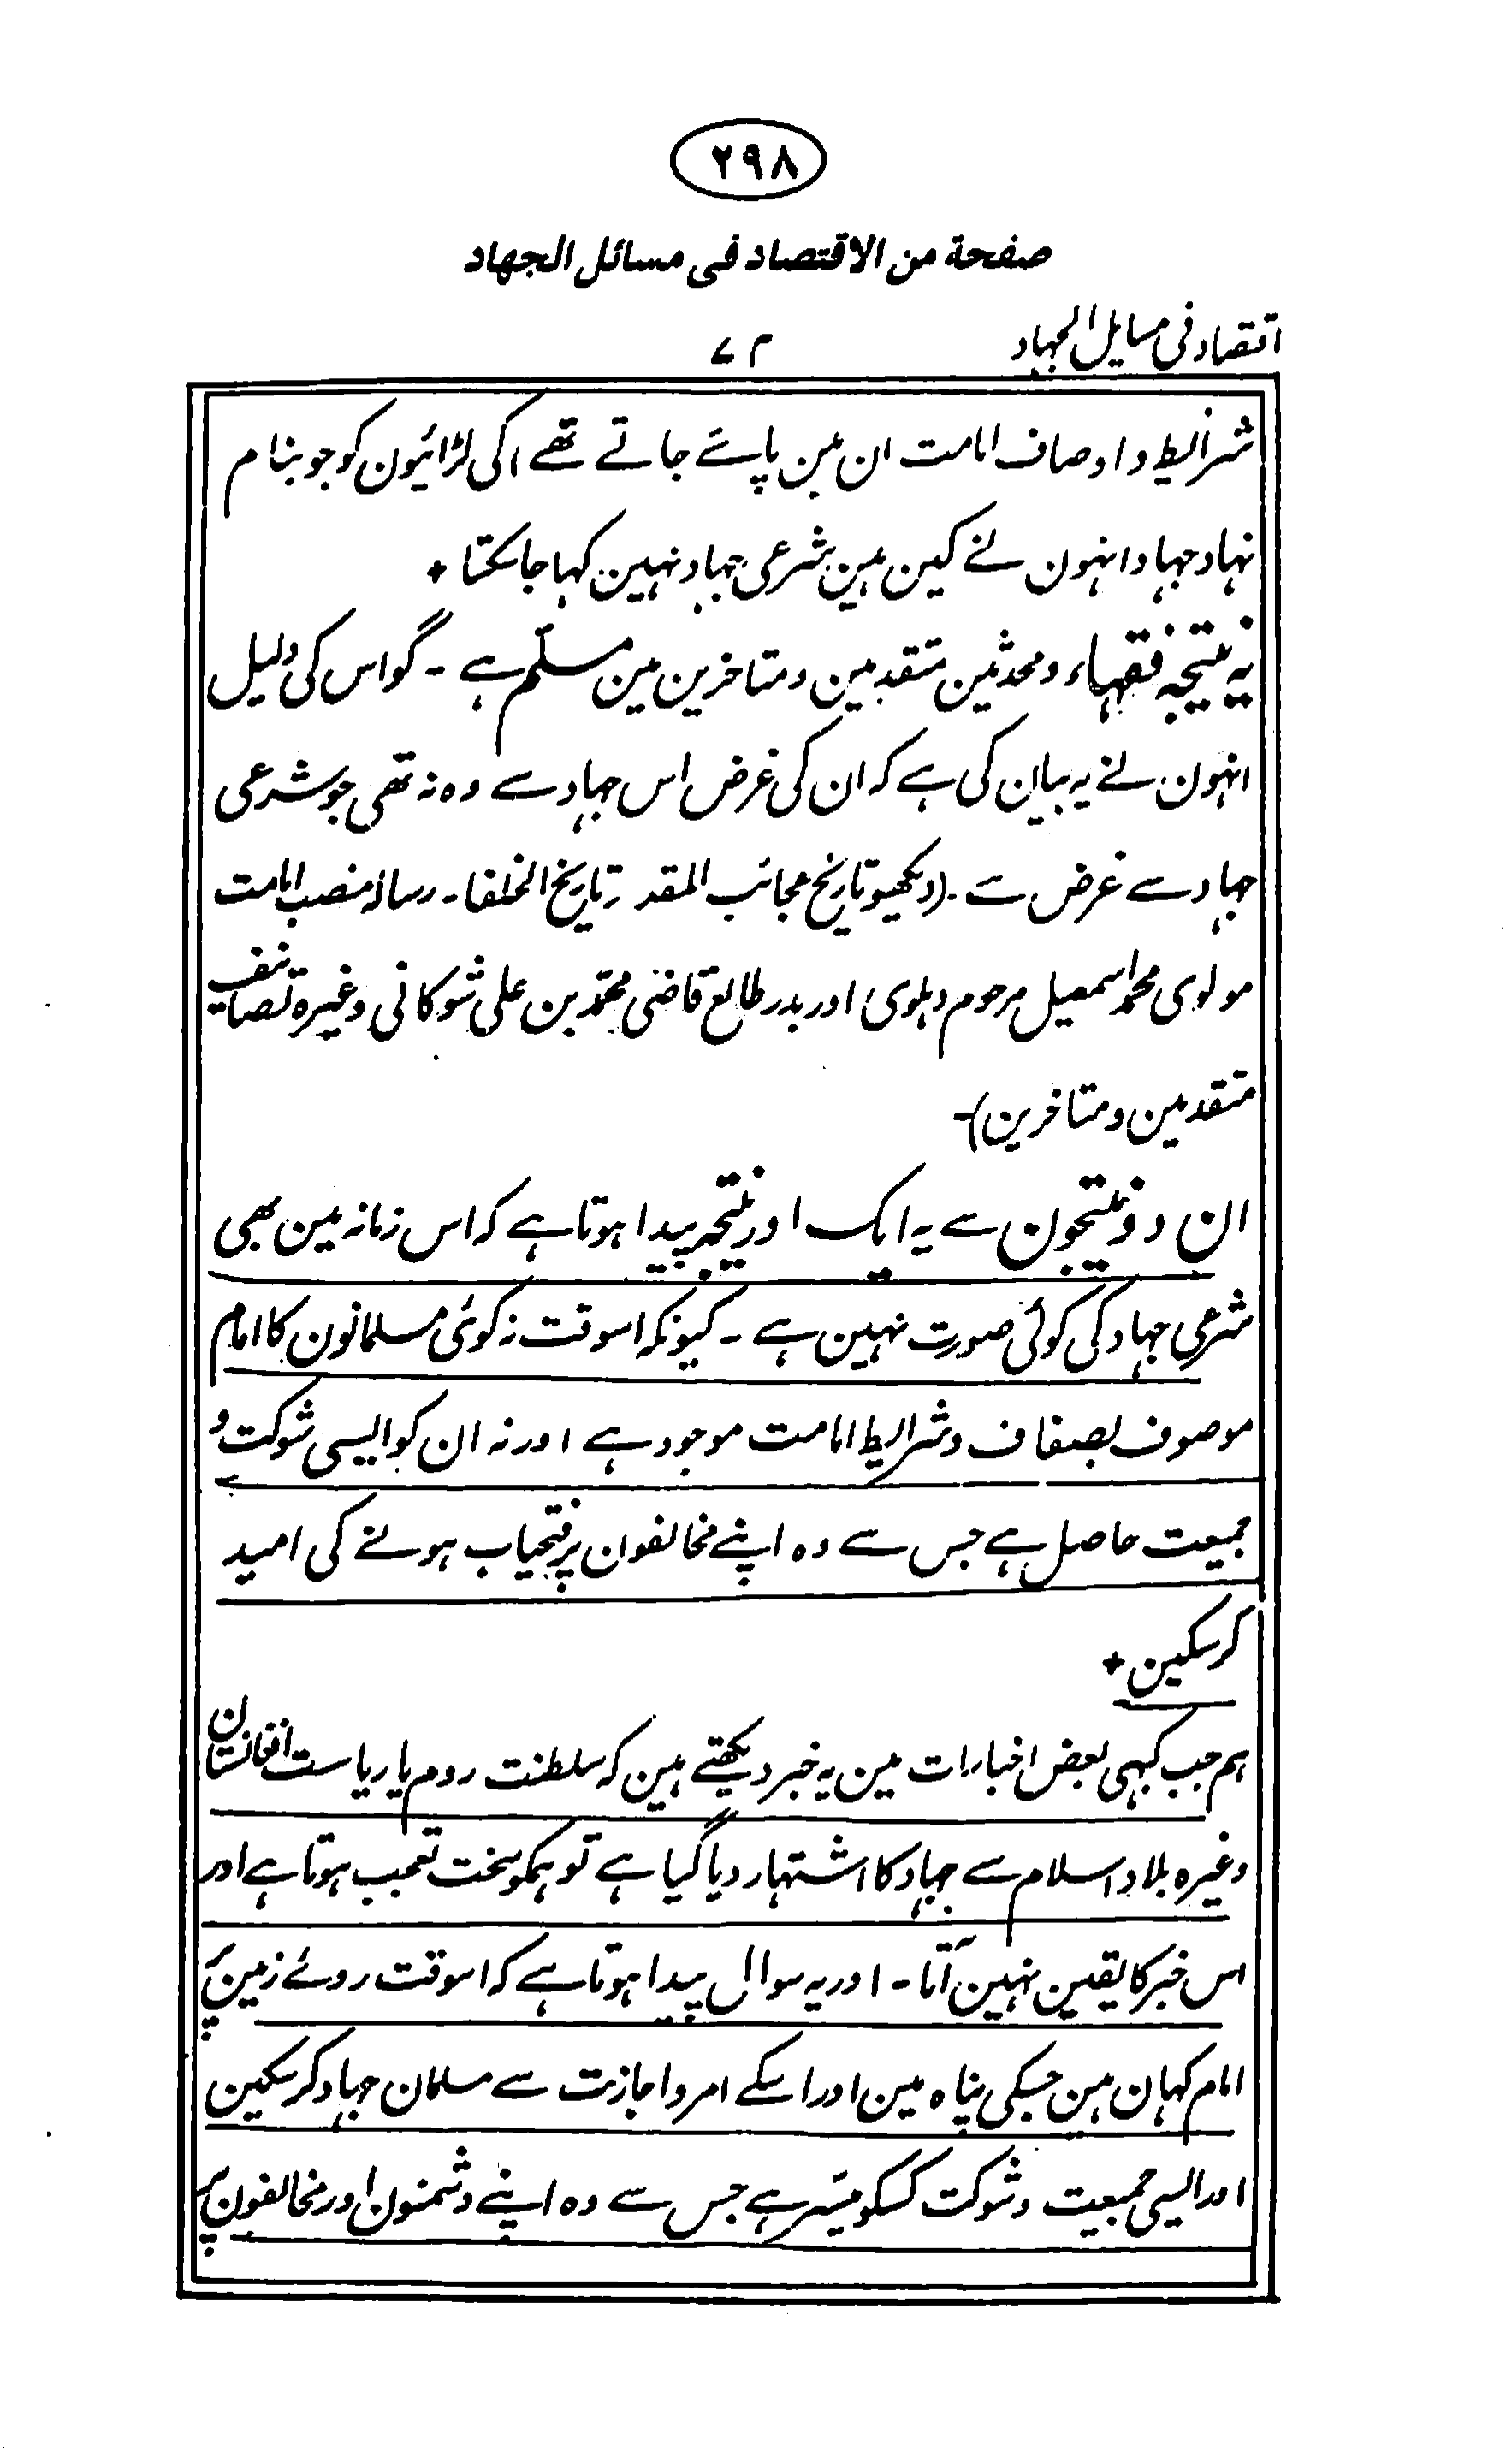 ۲۹۸
صفحة من الاقتصاد فى مسائل الجهاد
اقتصاد فی مسایل الجہاد
۷۲
شرایط و اوصاف امامت ان مین پائے جاتے تھے اکی لڑائیون کو جو بنام
نہاد جہاد انہون نے کین ہین شرعی جہاد نہین کہا جاسکتا +
یہ نتیجہ فقہاء و محدثین متقدمین و متاخرین مین مسلّم ہے - گو اس کی دلیل
انہون نے یہ بیان کی ہے کہ ان کی غرض اس جہاد سے وہ نہ تھی جو شرعی
جہاد سے غرض ہے - (دیکھو تاریخ عجائب المقدور تاریخ الخلفا - رسالہ منصب امامت
مولوی محمد اسمعیل مرحوم دہلوی اور بدر طالع قاضی محمّد بن علی شوکانی وغیرہ تصانیف
متقدمین و متاخرین) -
ان دو نتیجون سے یہ ایک اور نتیجہ پیدا ہوتا ہے کہ اس زمانہ مین بھی
شرعی جہاد کی کوئی صورت نہین ہے - کیونکہ اسوقت نہ کوئی مسلمانون کا امام
موصوف بصفاف و شرایط امامت موجود ہے اور نہ ان کو ایسی شوکت و
جمیعت حاصل ہے جس سے وہ اپنے مخالفون پر فتحیاب ہونے کی امید
کرسکین +
ہم جب کبہی بعض اخبارات مین یہ خبر دیکھتے ہین کہ سلطنت روم یا ریاست افغانستان
وغیرہ بلاد اسلام سے جہاد کا اشتہار دیا گیا ہے تو ہمکو سخت تعجب ہوتا ہے اور
اس خبر کا یقین نہین آتا - اور یہ سوال پیدا ہوتا ہے کہ اسوقت روئے زمین پر
امام کہان ہین جسکی پناہ مین اور اسکے امر و اجازت سے مسلمان جہاد کرسکین
اور ایسی جمیعت و شوکت کسکو میسّر ہے جس سے وہ اپنے دشمنون اور مخالفون پر